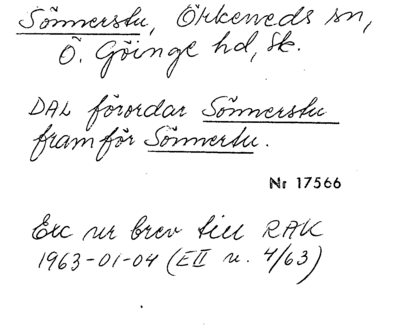 Sönnerstu, Örkeneds sn,
Ö. Göinge hd, Sk.
DAL förordar Sönnerstu
framför Sönnertu.
Nr 17566
Exc ur brev till RAK
1963-01-04 (EII u. 4/63)